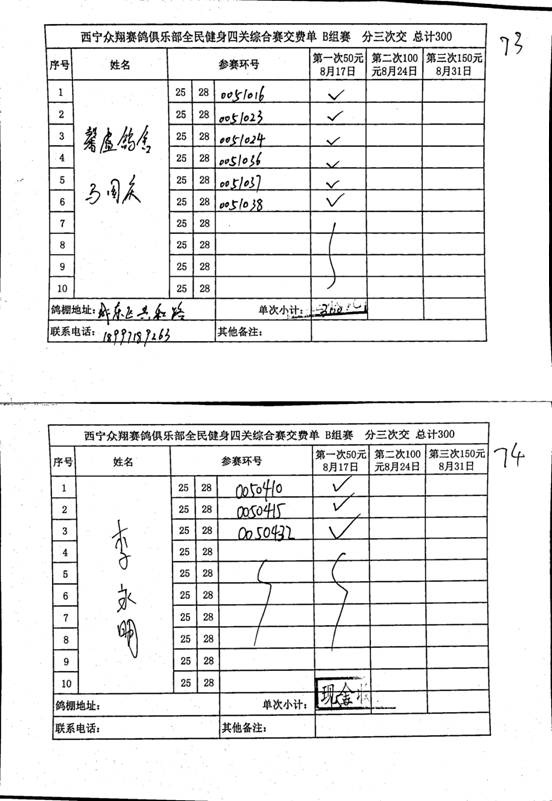 西宁众翔赛鸽俱乐部全民健身四关综合赛交费单 B组赛 分三次交 总计300
73
序号 姓名 参赛环号 第一次50元 8月17日 第二次100元8月24日 第三次150元 8月31日
1 25 28 0051016 ✓
2 25 28 0051023 ✓
3 馨盧鸽舍 25 28 0051024 ✓
4 25 28 0051036 ✓
5 马国庆 25 28 0051037 ✓
6 25 28 0051038 ✓
7 25 28
8 25 28
9 25 28
10 25 28
鸽棚地址：城东区共和路 单次小计：300元
联系电话：18997189263 其他备注：
西宁众翔赛鸽俱乐部全民健身四关综合赛交费单 B组赛 分三次交 总计300
74
序号 姓名 参赛环号 第一次50元 8月17日 第二次100元8月24日 第三次150元 8月31日
1 25 28 0050410 ✓
2 25 28 0050415 ✓
3 25 28 0050432 ✓
4 李永明 25 28
5 25 28
6 25 28
7 25 28
8 25 28
9 25 28
10 25 28
鸽棚地址： 单次小计： 现金
联系电话： 其他备注：